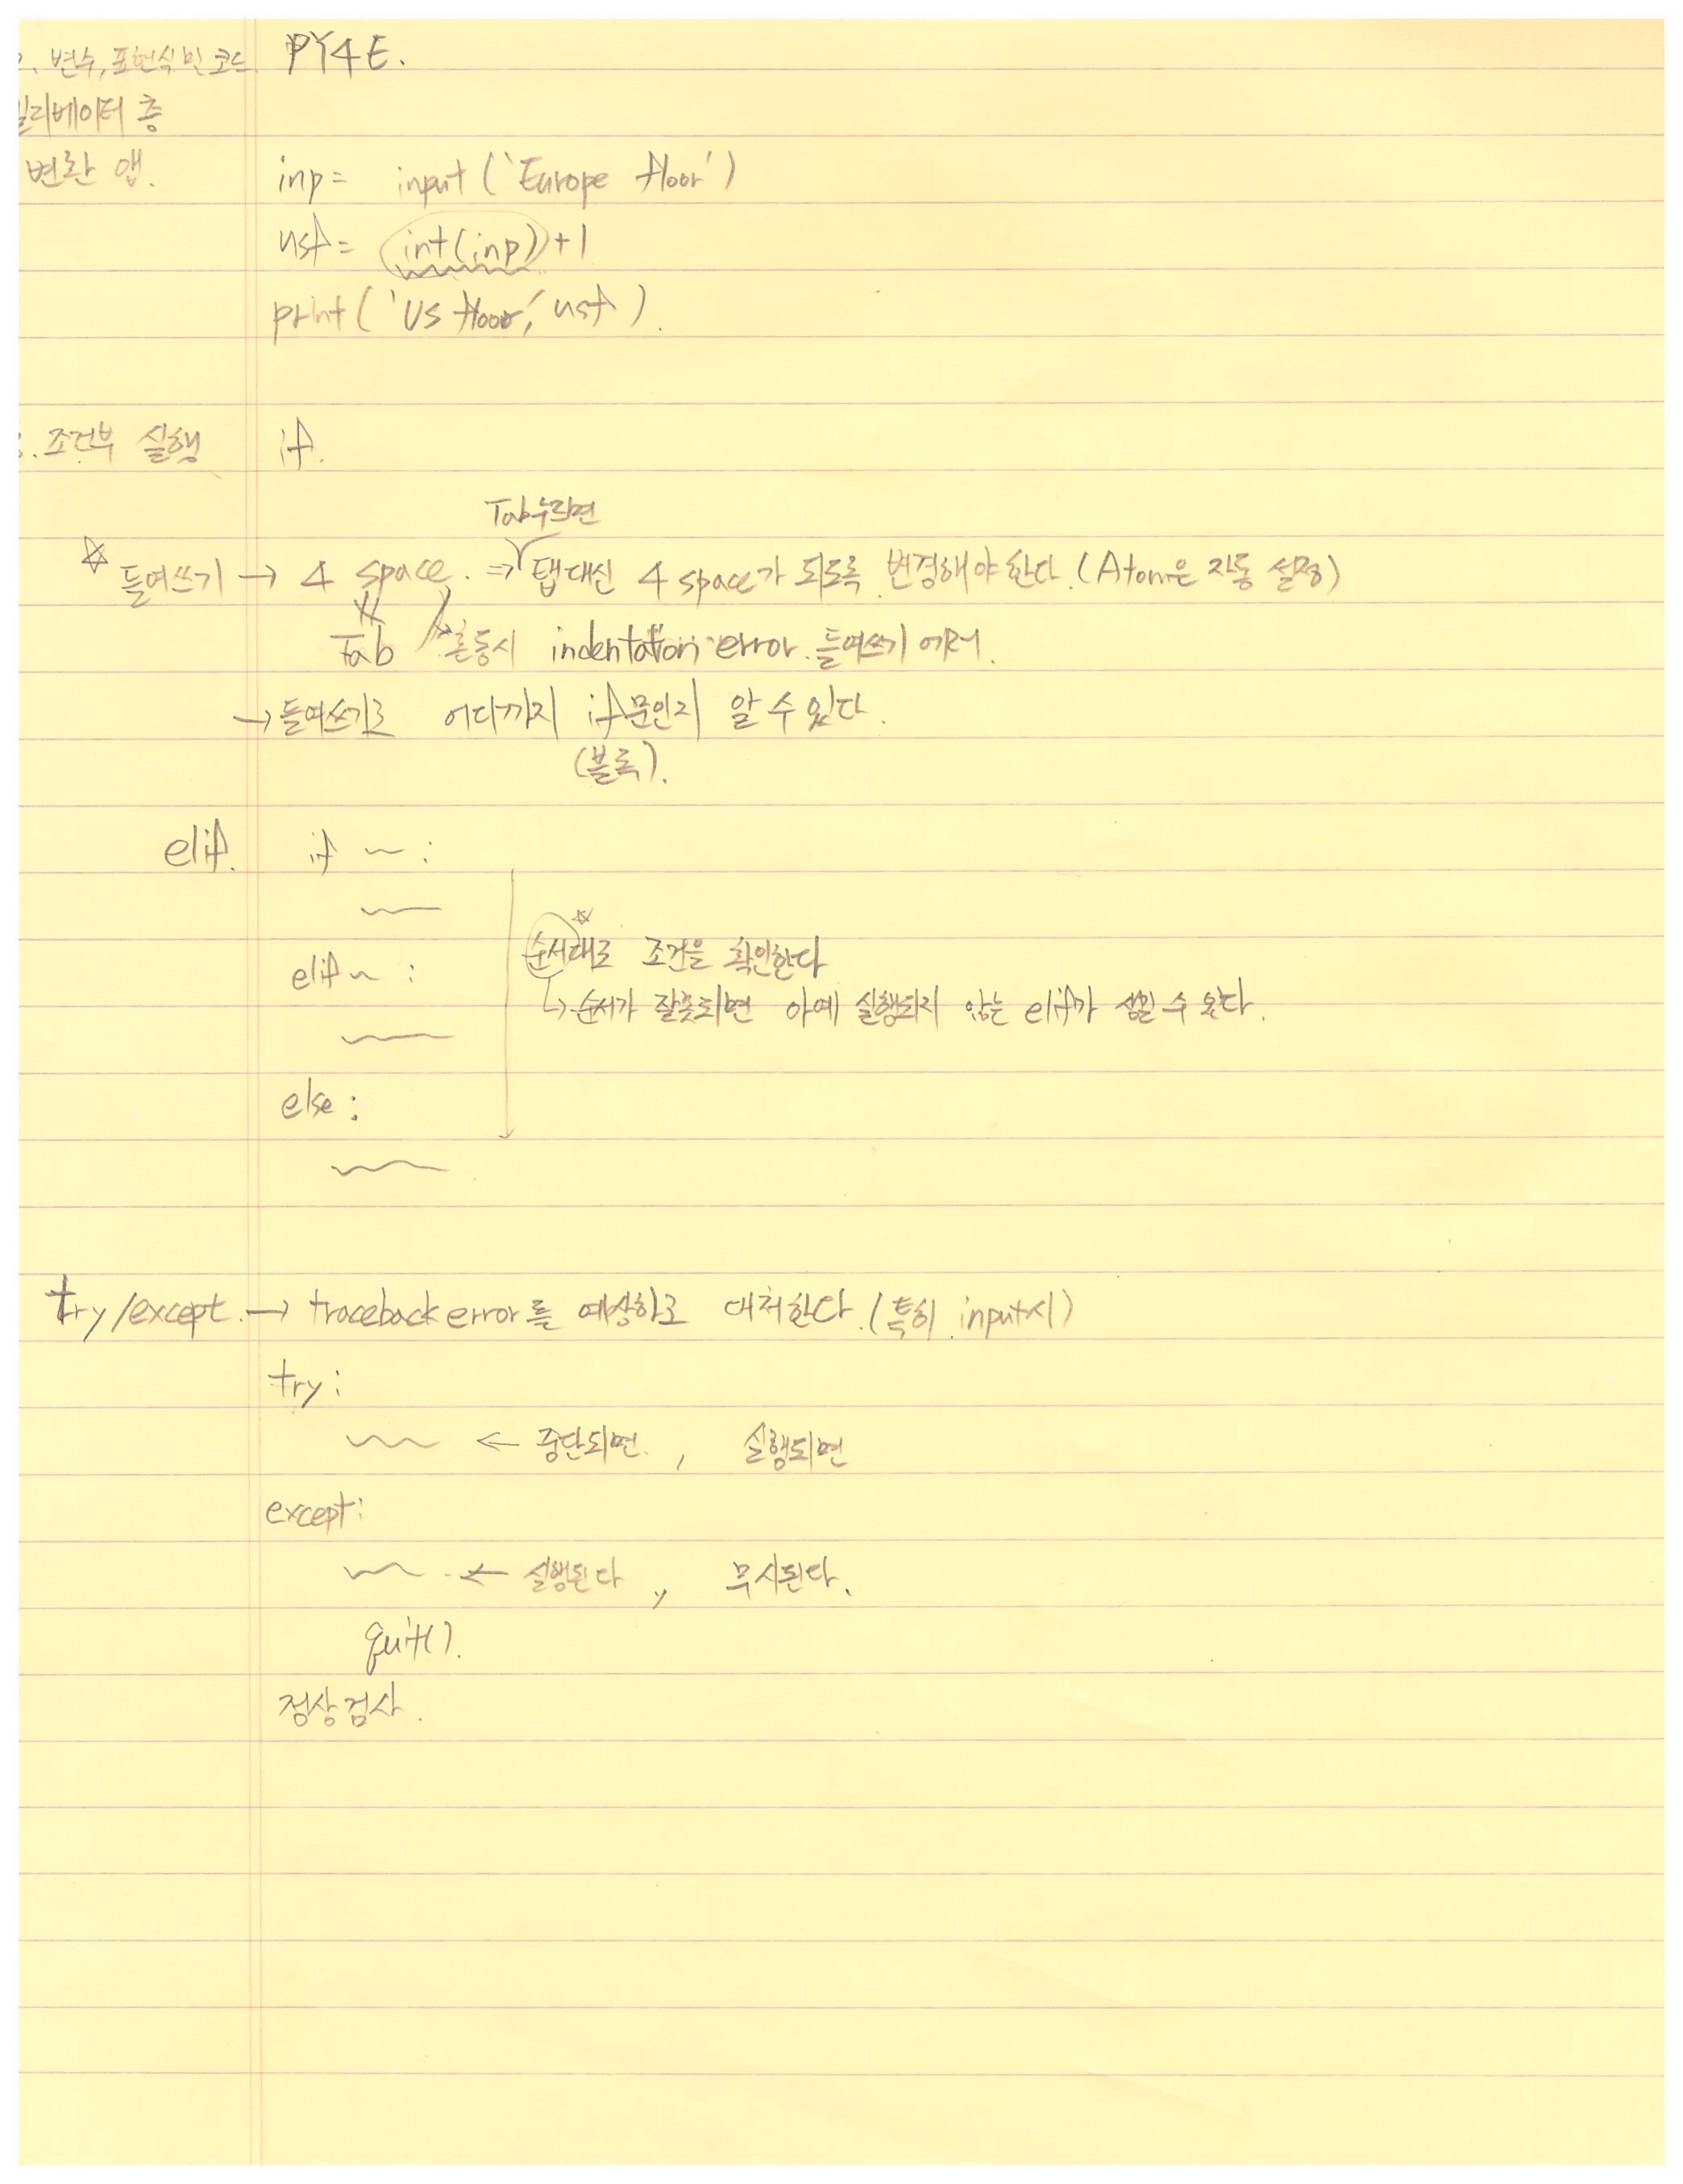 변수, 표현식 및 코드 PY4E.
엘리베이터 층
변환 앱.
inp = input ('Europe floor')
usf = int(inp) + 1
print ( 'US floor', usf ).
조건부 실행 if.
Tab누르면
☆ 들여쓰기 → 4 space. ⇒ 탭대신 4 space가 되도록 변경해야한다. (Atom은 자동 설정)
Tab 혼동시 indentation error. 들여쓰기 에러.
→ 들여쓰기로 어디까지 if문인지 알 수 있다.
(블록).
elif. if ~ :
☆
순서대로 조건을 확인한다
elif ~ :
↳ 순서가 잘못되면 아예 실행되지 않는 elif가 생길 수 있다.
else :
try/except. → traceback error를 예상하고 대처한다. (특히 input시)
try :
← 중단되면. , 실행되면
except :
← 실행된다 , 무시된다.
quit().
정상검사.